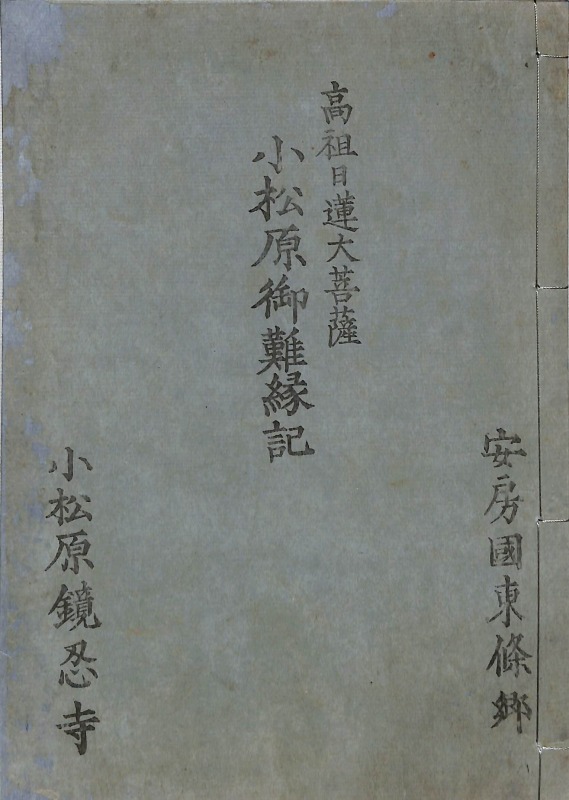 安房國東條鄉
高祖日蓮大菩薩
小松原御難縁記
小松原鏡忍寺